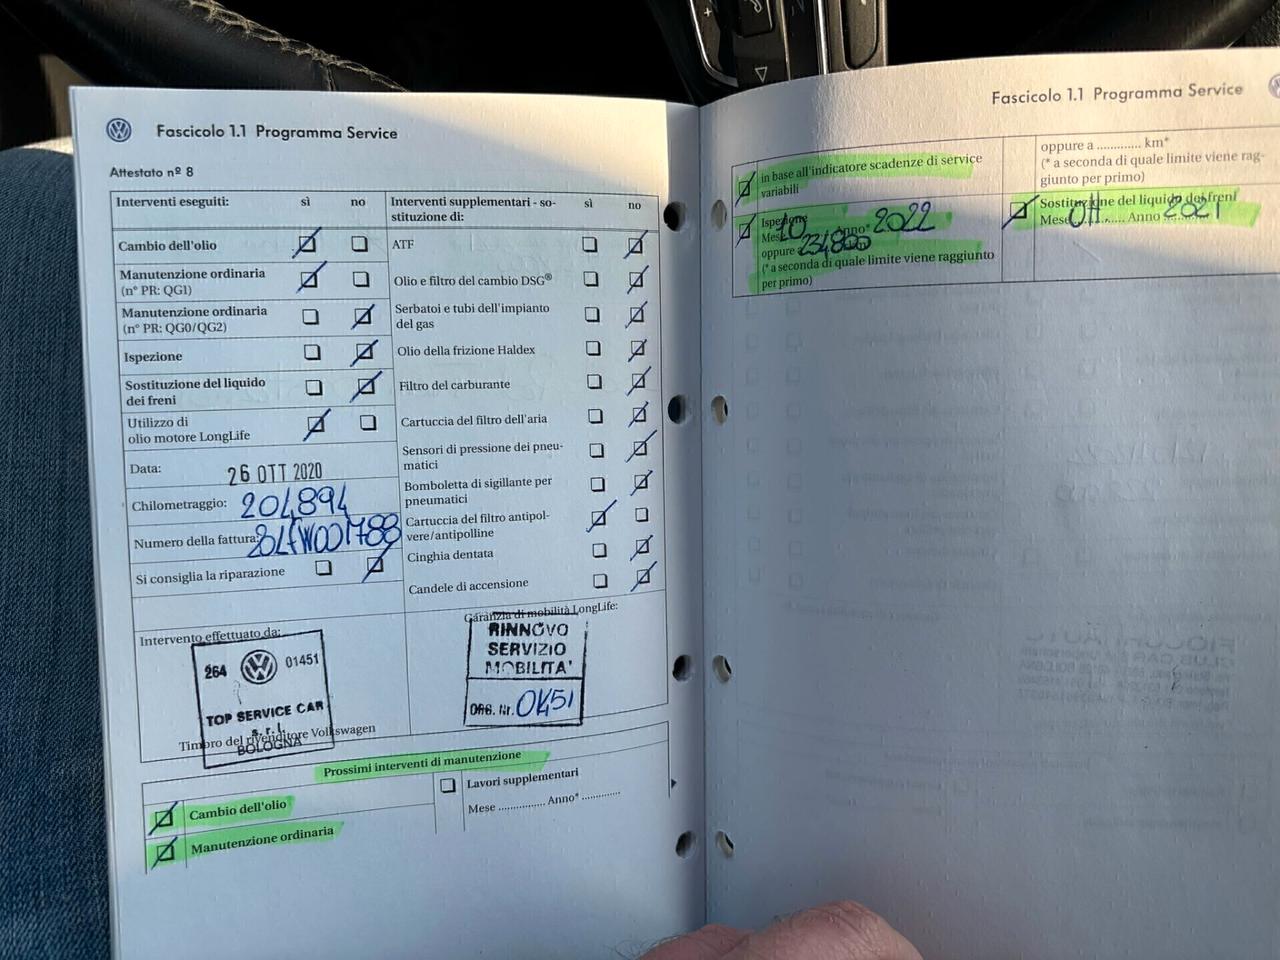 Fascicolo 1.1 Programma Service
Attestato nº 8
Interventi eseguiti: sì no
Cambio dell'olio
Manutenzione ordinaria
(nº PR: QG1)
Manutenzione ordinaria
(nº PR: QG0/QG2)
Ispezione
Sostituzione del liquido
dei freni
Utilizzo di
olio motore LongLife
Data: 26 OTT 2020
Chilometraggio: 204894
Numero della fattura:
Si consiglia la riparazione
Interventi supplementari - so-
stituzione di: sì no
ATF
Olio e filtro del cambio DSG®
Serbatoi e tubi dell'impianto
del gas
Olio della frizione Haldex
Filtro del carburante
Cartuccia del filtro dell'aria
Sensori di pressione dei pneu-
matici
Bomboletta di sigillante per
pneumatici
Cartuccia del filtro antipol-
vere/antipolline
Cinghia dentata
Candele di accensione
Intervento effettuato da:
264 01451
TOP SERVICE CAR
s.r.l.
BOLOGNA
Timbro del rivenditore Volkswagen
Garanzia di mobilità LongLife:
RINNOVO
SERVIZIO
MOBILITA'
ORG. Nr.
Prossimi interventi di manutenzione
Cambio dell'olio
Manutenzione ordinaria
Lavori supplementari
Mese ................ Anno* .............
Fascicolo 1.1 Programma Service
in base all'indicatore scadenze di service
variabili
Ispezione
Mese 10 Anno* 2022
oppure a 234800
(* a seconda di quale limite viene raggiunto
per primo)
oppure a ............. km*
(* a seconda di quale limite viene rag-
giunto per primo)
Sostituzione del liquido dei freni
Mese Ott Anno 2021